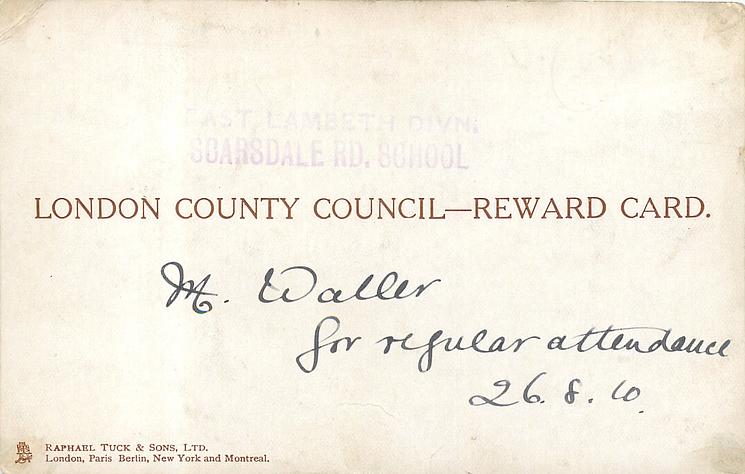 EAST LAMBETH DIVN.
SCARSDALE RD. SCHOOL
LONDON COUNTY COUNCIL—REWARD CARD.
M. Waller
for regular attendance
26. 8. 10.
RAPHAEL TUCK & SONS, LTD.
London, Paris Berlin, New York and Montreal.